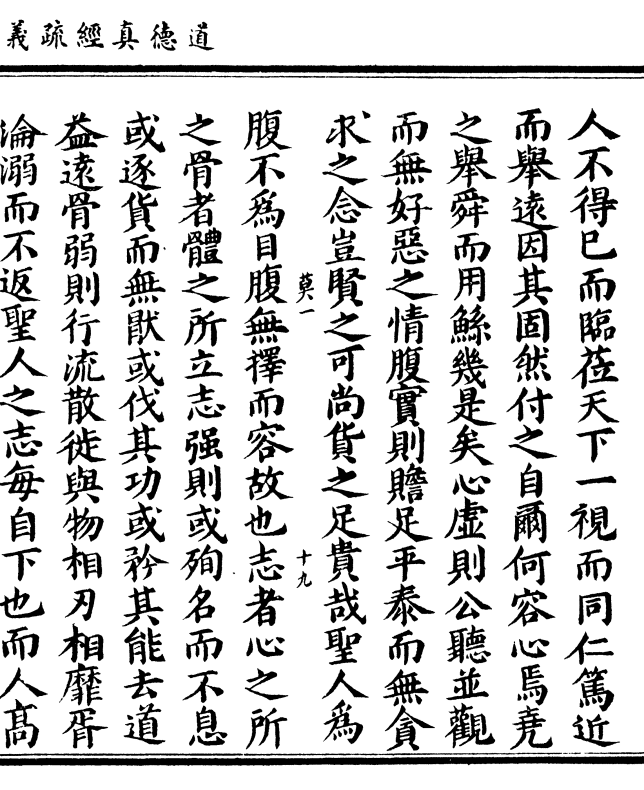 道德真經疏義
人不得已而臨莅天下一視而同仁篤近
而舉遠因其固然付之自爾何容心焉堯
之舉舜而用鯀幾是矣心虛則公聽並觀
而無好惡之情腹實則贍足平泰而無貪
求之念豈賢之可尚貨之足貴哉聖人爲
莫一
十九
腹不爲目腹無擇而容故也志者心之所
之骨者體之所立志强則或殉名而不息
或逐貨而無猒或伐其功或矜其能去道
益遠骨弱則行流散徙與物相刃相靡胥
淪溺而不返聖人之志每自下也而人高